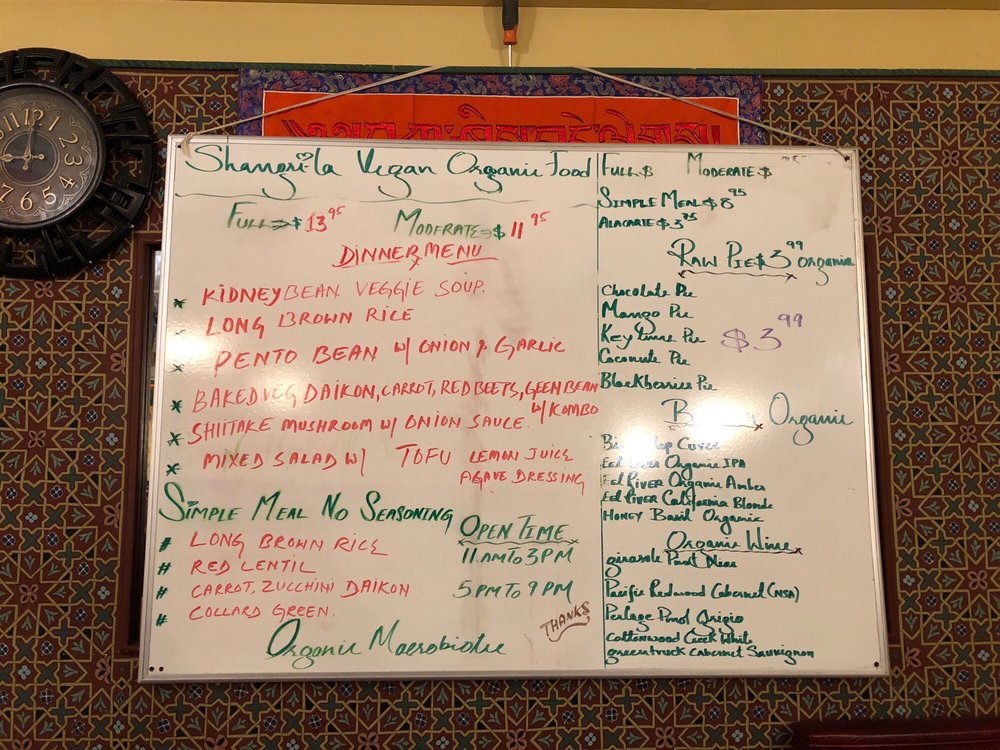 Shangri-la Vegan Organic Food
Full → $ 13 95 Moderate → $ 11 95
Dinner Menu
* Kidney Bean Veggie Soup.
Long Brown Rice
* Pento Bean w/ Onion & Garlic
* Baked Veg Daikon, Carrot, Red Beets, Geen Bean w/ Kombo
* Shiitake Mushroom w/ Onion Sauce.
* Mixed Salad w/ Tofu Lemon Juice
Agave Dressing
Simple Meal No Seasoning
# Long Brown Rice
# Red Lentil
# Carrot, Zucchini Daikon
# Collard Green.
Open Time
11 AM To 3 PM
5 PM To 9 PM
Thanks
Organic Macrobiotic
Full $ Moderate $
Simple Meal $ 8 95
Alacarte $ 3
Raw Pie $ 3 99 organic
Chocolate Pie
Mango Pie
Key lime Pie
Coconute Pie
$ 3 99
Blackberries Pie
Organic
Eel River Organic IPA
Eel River Organic Amber
Eel River California Blonde
Honey Basil Organic
Organic Wine
girasole Pinot
Pacific Redwood Cabernet (NSA)
Perlage Pinot Grigio
Cottonwood Creek White
greentruck Cabernet Sauvignon
12
2
3
4
5
6
7
8
9
11